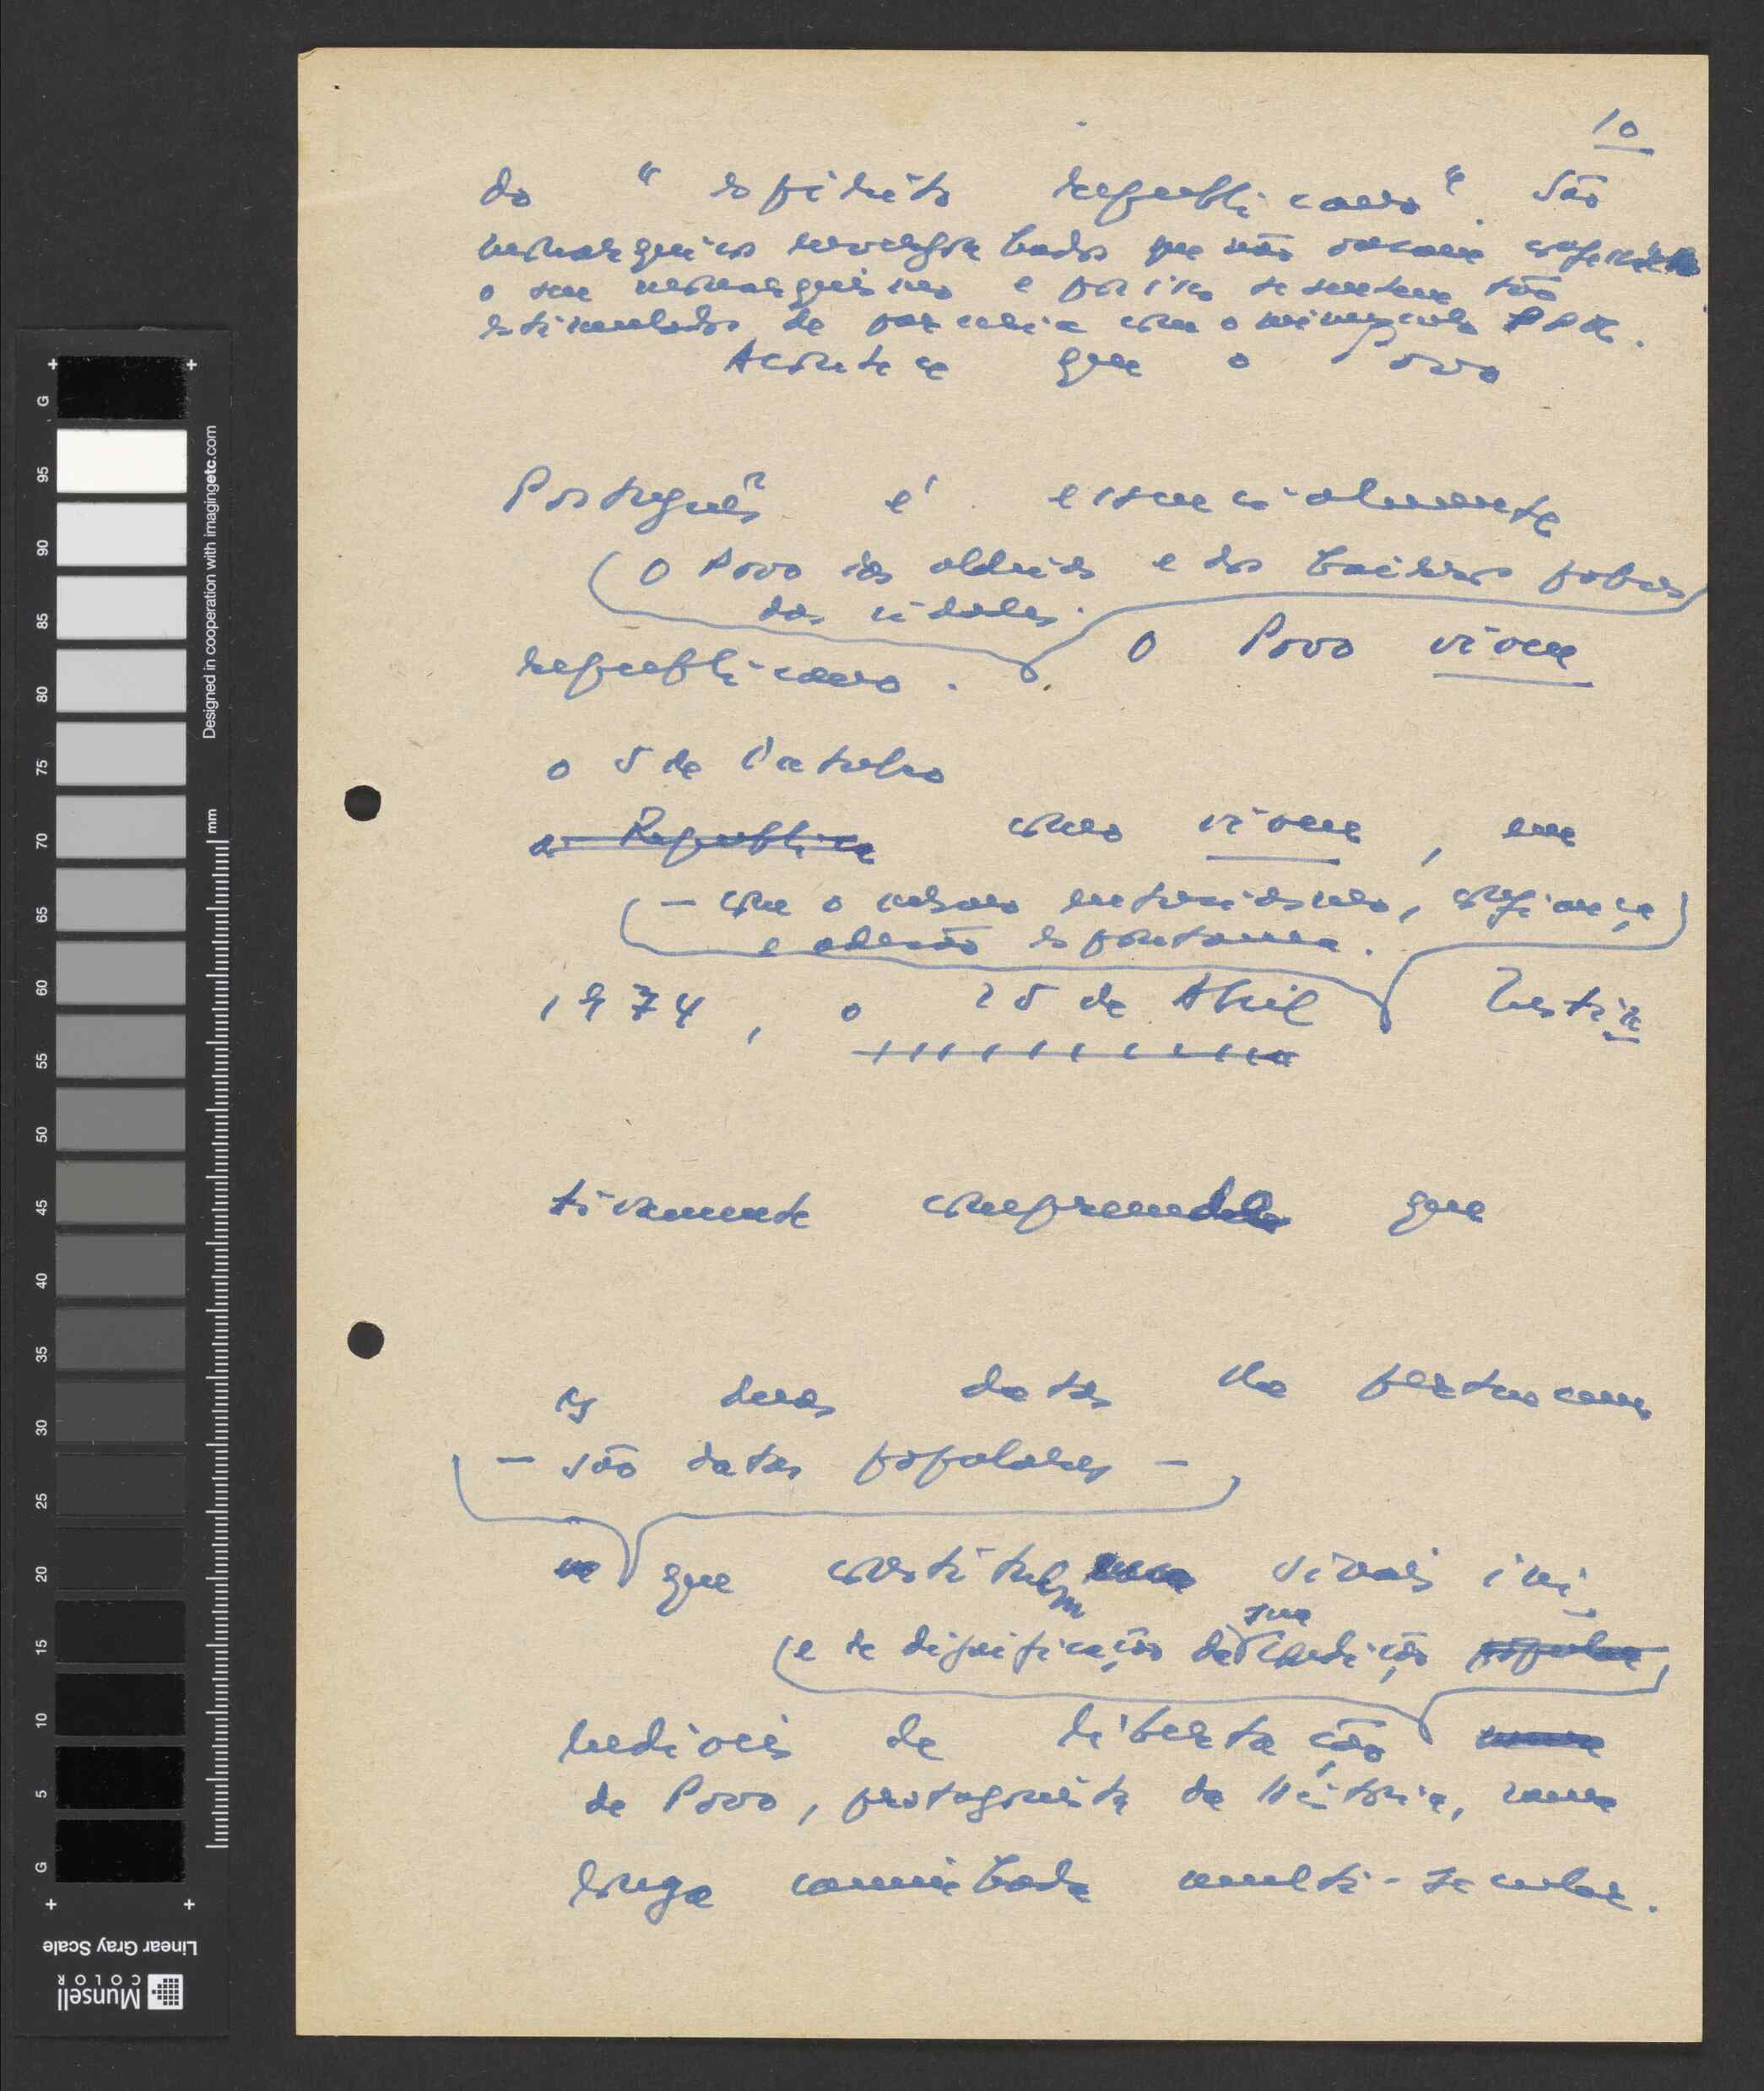 10
do "espírito republicano". São
monárquicos envergonhados que não ousam confessar
o seu monarquismo e por isso se sentem tão
estimulados de parceria com o minúsculo PPM.
Acontece que o Povo
Português é essencialmente
(O Povo das aldeias e dos bairros pobres
das cidades.
republicano. O Povo viveu
o 5 de Outubro
a República como viveu, em
(- com o mesmo entusiasmo, confiança)
e adesão espontânea.
1974, o 25 de Abril Instin
tivamente compreende que
as duas datas lhe pertencem
- são datas populares -
que constituem sinais ini
sua
(e de dignificação da condição popular)
ludíveis de libertação
do Povo, protagonista da História, numa
longa caminhada multi-secular.
G
95
90
85
80
75
70
65
60
55
50
45
40
35
30
25
20
15
10
5
G
mm
Designed in cooperation with imagingetc.com
Linear Gray Scale
Munsell
COLOR